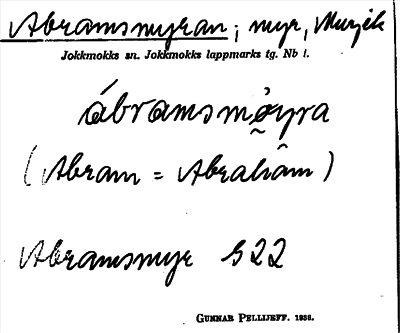 Abramsmyran, myr, Murjek
Jokkmokks sn. Jokkmokks lappmarks tg. Nb l.
ábramsmøyra
(Abram = Abrahâm)
Abramsmyr S22
GUNNAR PELLIJEFF. 1938.